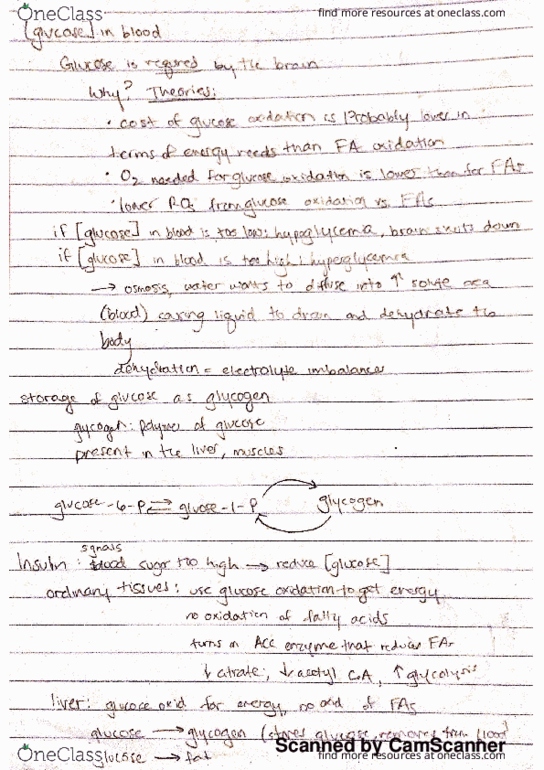 OneClass
find more resources at oneclass.com
[glucose] in blood
Glucose is required by the brain
Why? Theories:
• cost of glucose oxidation is probably lower in
terms of energy needs than FA oxidation
• O2 needed for glucose oxidation is lower than for FAs
• lower from glucose oxidation vs. FAs
if [glucose] in blood is too low: hypoglycemia, brain shuts down
if [glucose] in blood is too high: hyperglycemia
→ osmosis, water wants to diffuse into ↑ solute area
(blood) causing liquid to drain and dehydrate the
body
dehydration = electrolyte imbalances
storage of glucose as glycogen
glycogen: polymer of glucose
present in the liver, muscles
glucose-6-P ⇌ glucose-1-P glycogen
signals
Insulin: blood sugar too high → reduce [glucose]
ordinary tissues: use glucose oxidation to get energy
no oxidation of fatty acids
turns on ACC enzyme that reduces FAs
↓ citrate, ↓ acetyl CoA, ↑ glycolysis
liver: glucose oxid for energy, no oxid of FAs
glucose → glycogen (stores glucose, removes from blood)
Scanned by CamScanner
OneClass
glucose → fat
find more resources at oneclass.com